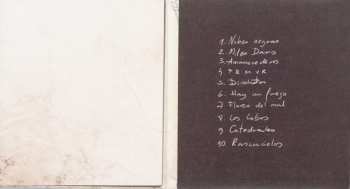 1. Nubes negras
2. Miles Davis
3. Amanecederes
4.
5.
6. Hay un fuego
7. Flores del mal
8. Los Lobos
9. Catedrales
10. Rascacielos